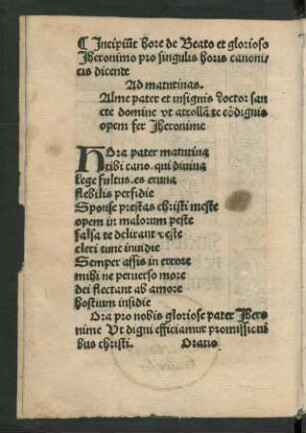 ¶ Incipiūt hore de Beato et glorioso
Iheronimo pro singulis horis canoni
cis dicende
Ad matutinas.
Alme pater et insignis doctor san
cte domine vt attollā te cōdignis
opem fer Iheronime
Hora pater matutina
tibi cano. qui diuina
lege fultus. es eruna
flebilis perfidie
Sponse prestas christi meste
opem in malorum peste
falsa te delirant veste
cleri tunc inuidie
Semper assis in errore
mihi ne peruerso more
dei flectant ab amore
hostium insidie
Ora pro nobis gloriose pater Ihero
nime Vt digni efficiamur promissioni
bus christi. Oratio